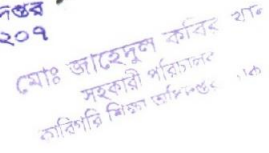 দপ্তর
২০৭
মোঃ জাহেদুল কবির
সহকারী পরিচালক
কারিগরি শিক্ষা অধিদপ্তর